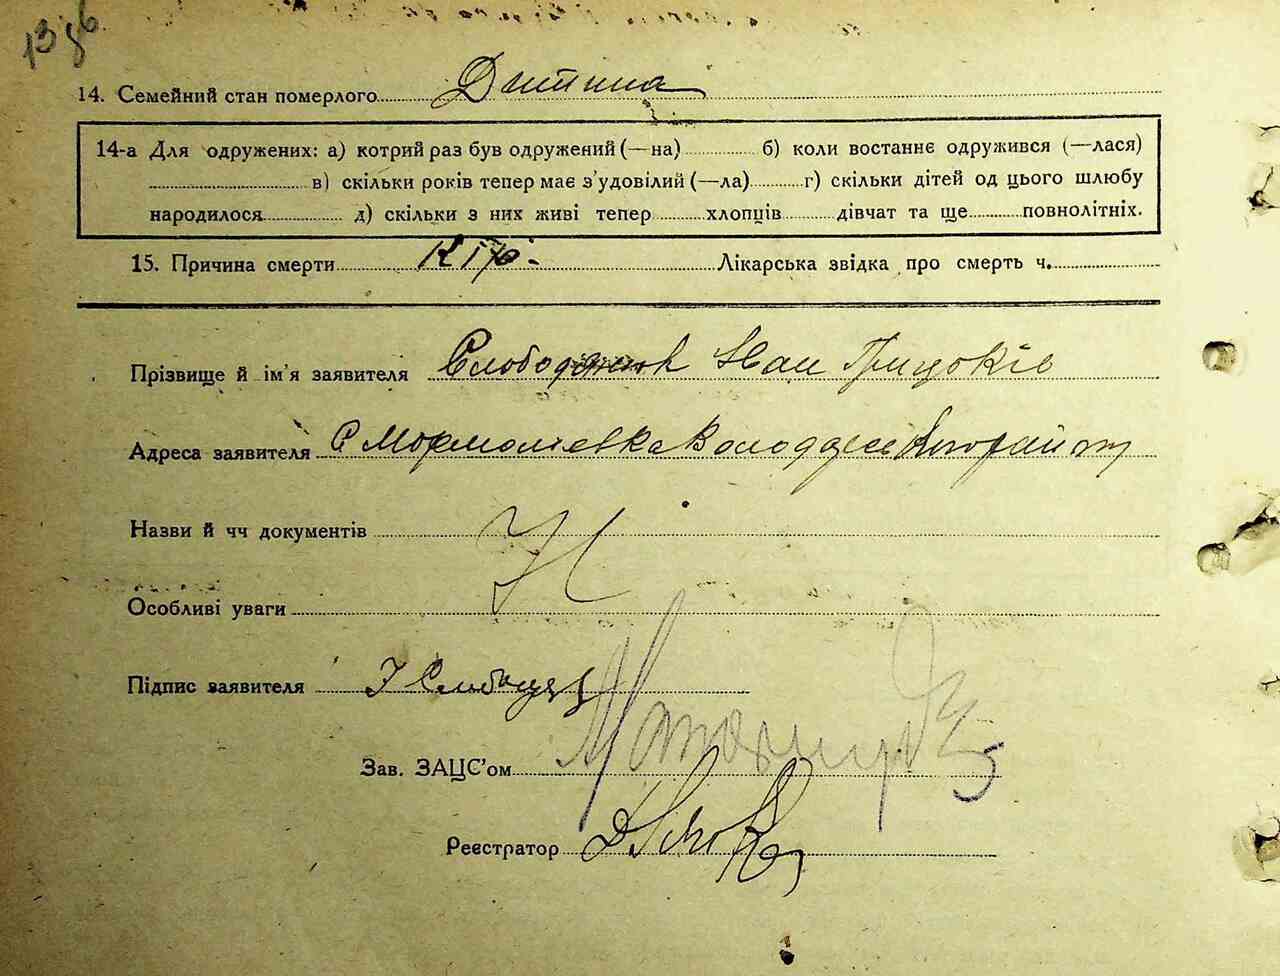 13 зв
14. Семейний стан померлого Дитина
14-а Для одружених: а) котрий раз був одружений (—на) б) коли востаннє одружився (—лася)
в) скільки років тепер має з'удовілий (—ла) г) скільки дітей од цього шлюбу
народилося д) скільки з них живі тепер хлопців дівчат та ще повнолітніх.
15. Причина смерти Кір. Лікарська звідка про смерть ч.
Прізвище й ім'я заявителя Слободяник Іван Грицьків
Адреса заявителя С Мормоліевка
Назви й чч документів
Особливі уваги
Підпис заявителя І
Зав. ЗАЦС'ом
Реєстратор